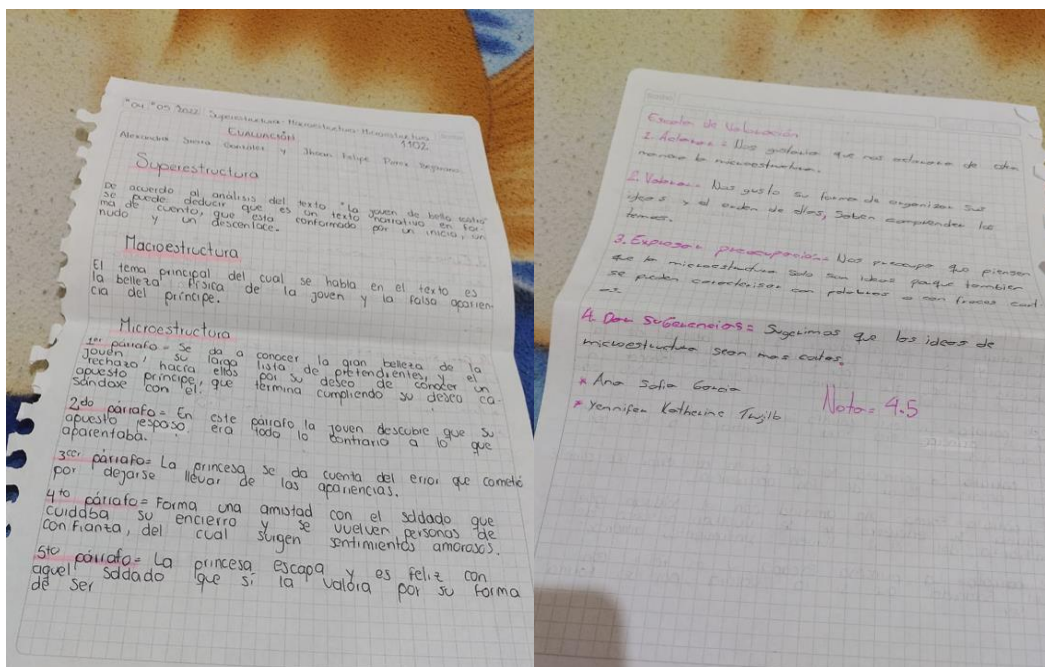 04 05 2022 Superestructura - Macroestructura - Microestructura
EVALUACIÓN
1102
Alexandra Sierra González y Jhoan Felipe
Superestructura
De acuerdo al análisis del texto "La joven de bello rostro"
se puede deducir que es un texto narrativo en for-
ma de cuento, que esta conformado por un inicio, un
nudo y un descenlace.
Macroestructura
El tema principal del cual se habla en el texto es
la belleza física de la joven y la falsa aparien-
cia del príncipe.
Microestructura
1er párrafo = Se da a conocer la gran belleza de la
joven, su larga lista de pretendientes, y el
rechazo hacia ellos por su deseo de conocer un
apuesto príncipe, que termina cumpliendo su deseo ca-
sándose con él.
2do párrafo = En este párrafo la joven descubre que su
apuesto esposo era todo lo contrario a lo que
aparentaba.
3cer párrafo= La princesa se da cuenta del error que cometió
por dejarse llevar de las apariencias.
4to párrafo = Forma una amistad con el soldado que
cuidaba su encierro y se vuelven personas de
confianza, del cual surgen sentimientos amorosos.
5to párrafo= La princesa escapa y es feliz con
aquel soldado que si la valora por su forma
de ser
Escala de Valoración
1. Aclarar = Nos gustaria que nos aclararan de otra
manera la microestructura.
2. Valorar = Nos gusto su forma de organizar sus
ideas y el orden de ellas, saben comprender los
temas.
3. Expresar preocupación = Nos preocupa que piensen
que la microestructura solo son ideas porque tambien
se pueden caracterisar con palabras o con frases cort
as.
4. Dar Sugerencias = Sugerimos que las ideas de
microestructura sean mas cortas.
* Ana Sofia Garcia
* Yennifer Katherine Trujillo
Nota= 4.5